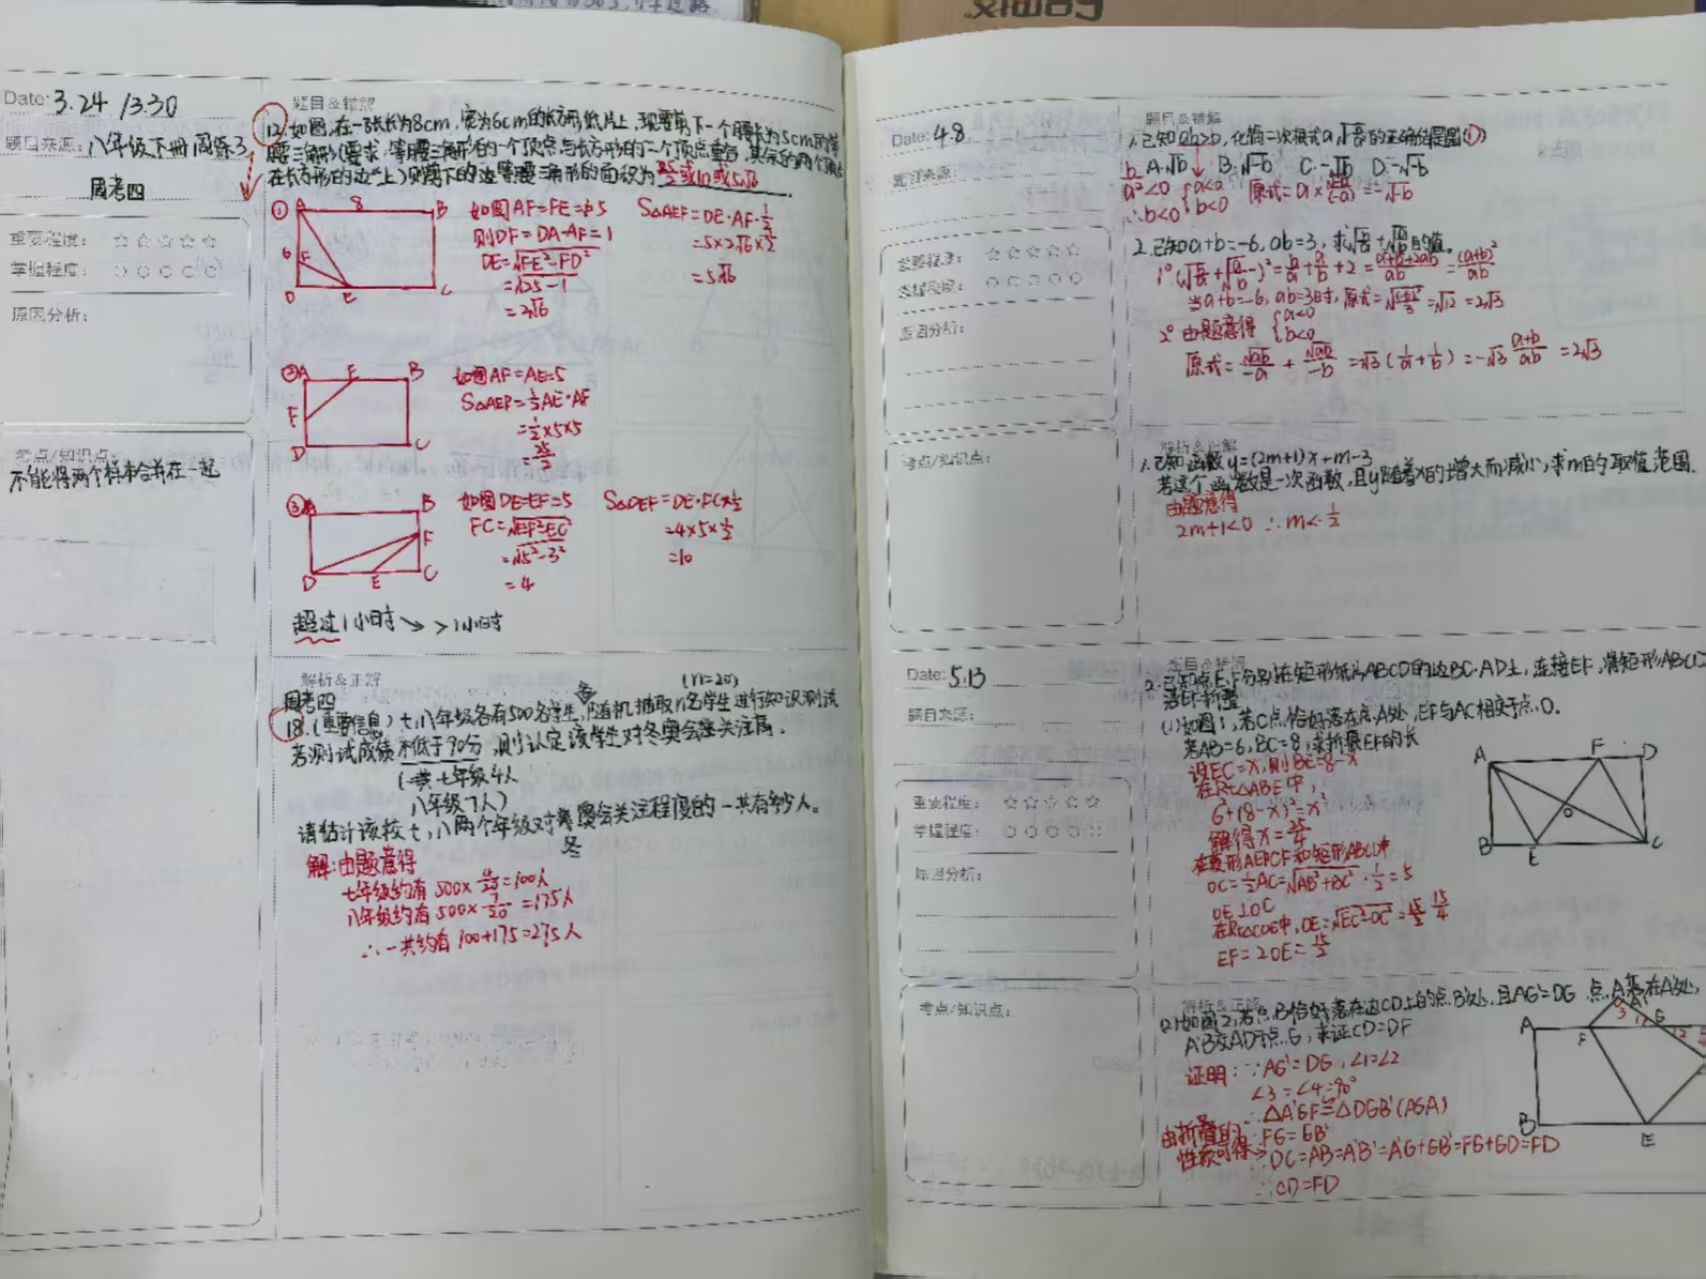 Date: 3.24 /3.30
题目来源: 八年级下册周练3
周考四
重要程度: ☆☆☆☆☆
掌握程度: ○○○○○
原因分析:
考点/知识点:
不能将两个样本合并在一起
题目&错解
12.如图,在一张长为8cm,宽为6cm的长方形纸片上,现要剪下一个腰长为5cm的等
腰三角形(要求:等腰三角形的一个顶点与长方形的一个顶点重合,其余的两个顶点
在长方形的边上)则剪下的这等腰三角形的面积为 25/2或10或5√6
① A 8 B
6 F
D E C
如图AF=FE=5
则DF=DA-AF=1
DE=√FE²-FD²
=√25-1
=2√6
S△AEF=DE·AF·1/2
=5×2√6×1/2
=5√6
② A E B
F
D C
如图AF=AE=5
S△AEF=1/2AE·AF
=1/2×5×5
=25/2
③ A B
F
D E C
如图DE=EF=5
FC=√EF²-EC²
=√5²-3²
=4
S△DEF=DE·FC×1/2
=4×5×1/2
=10
超过1小时 → >1小时
解析&正解
周考四 (n=20)
18.(重要信息)七,八年级各有500名学生,各随机抽取n名学生进行知识测试
若测试成绩不低于90分,则认定该学生对冬奥会关注高.
(共七年级4人
八年级7人)
请估计该校七,八两个年级对冬奥会关注程度的一共有多少人。
解:由题意得
七年级约有500×4/20=100人
八年级约有500×7/20=175人
∴一共约有100+175=275人
Date: 4.8
题目来源:
重要程度: ☆☆☆☆☆
掌握程度: ○○○○○
原因分析:
考点/知识点:
题目&错解
A.√b B.√-b C.-√b D.-√-b
a²<0 {a<0
∴b<0 b<0
=-√-b
2.已知a+b=-6,ab=3,求√b/a+√a/b的值。
1° (√b/a+√a/b)²=b/a+a/b+2=a²+b²+2ab/ab=(a+b)²/ab
当a+b=-6,ab=3时,原式=√(-6)²/3=√12=2√3
2° 由题意得 {a<0
b<0
原式=√ab/-a+√ab/-b=-√3(1/a+1/b)=-√3 a+b/ab=2√3
解析&正解
1.已知函数y=(2m+1)x+m-3
若这个函数是一次函数,且y随着x的增大而减小,求m的取值范围.
由题意得
2m+1<0 ∴m<-1/2
Date: 5.13
题目来源:
重要程度: ☆☆☆☆☆
掌握程度: ○○○○○
原因分析:
考点/知识点:
题目&错解
2.已知点E,F分别在矩形纸片ABCD的边BC·AD上,连接EF,将矩形ABCD
沿EF折叠
(1)如图1,若C点恰好落在点A处,EF与AC相交于点O.
若AB=6,BC=8,求折痕EF的长
设EC=x,则BE=8-x
在Rt△ABE中,
6²+(8-x)²=x²
解得x=25/4
在菱形AECF和矩形ABCD中
OC=1/2AC=√AB²+BC²·1/2=5
OE⊥OC
在Rt△COE中,OE=√EC²-OC²=15/4
EF=2OE=15/2
A F D
O
B E C
解析&正解
(2)如图2,若点B恰好落在边CD上的点B'处,且A'G=DG 点A落在A'处,
A'B'交AD于点G,求证CD=DF
证明:∵A'G=DG,∠1=∠2
∠3=∠4=90°
∴△A'GF≌△DGB'(ASA)
∴FG=GB'
由折叠的
性质可得 DC=AB=A'B'=A'G+GB'=FG+GD=FD
∴CD=FD
A F G
B E